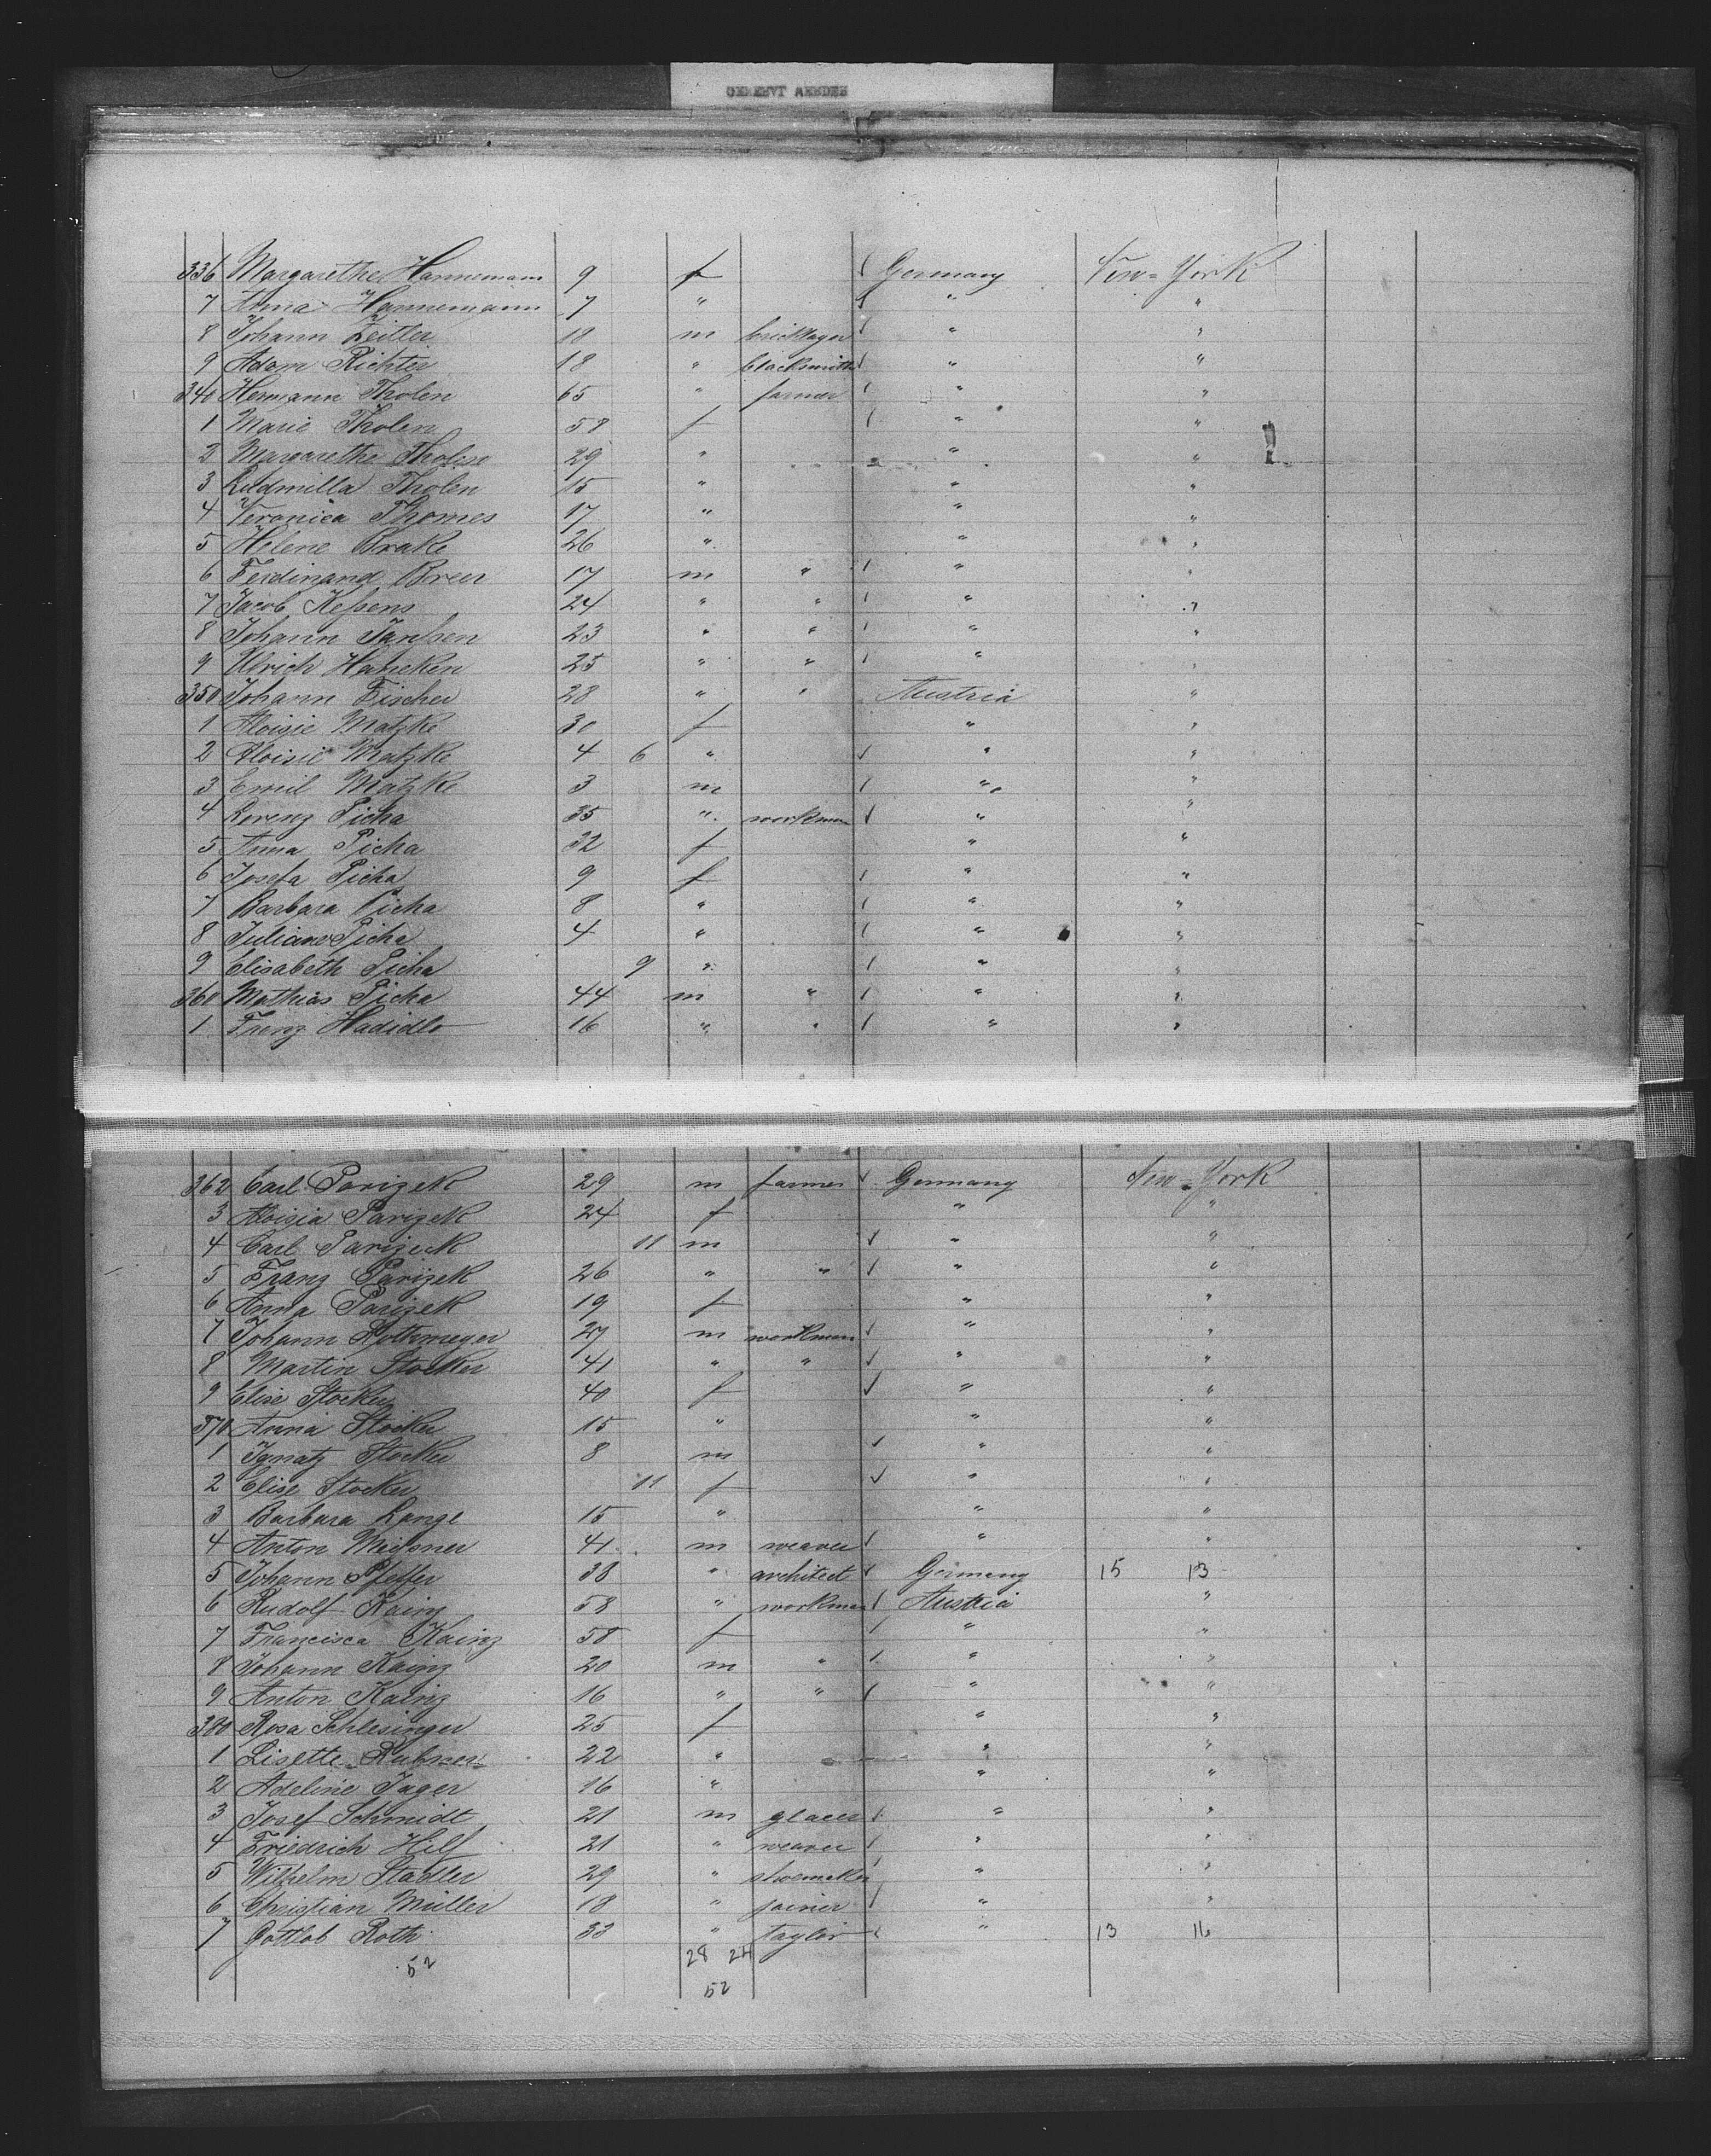 336 Margarethe Hannemann 9 f Germany New-York
7 Anna Hannemann 7 " " "
8 Johann Zeitler 18 m bricklayer " "
9 Adam Richter 18 " blacksmith " "
340 Hermann Tholen 65 " farmer " "
1 Marie Tholen 58 f " "
2 Margarethe Tholen 29 " " "
3 Ludmilla Tholen 15 " " "
4 Veronica Thomes 17 " " "
5 Helene Brake 26 " " "
6 Ferdinand Breer 17 m " " "
7 Jacob Keßens 24 " " " "
8 Johann Janßen 23 " " " "
9 Ulrich Hancken 25 " " " "
350 Johann Fischer 28 " " Austria "
1 Aloisie Matzke 30 f " "
2 Aloisie Matzke 4 6 " " "
3 Emil Matzke 3 m " "
4 Lorenz Picha 35 " workman " "
5 Anna Picha 32 f " "
6 Josefa Picha 9 f " "
7 Barbara Picha 8 " " "
8 Juliane Picha 4 " " "
9 Elisabeth Picha 9 " " "
360 Mathias Picha 44 m " " "
1 Franz Hadidlo 16 " " " "
362 Carl Parizek 29 m farmer Germany New-York
3 Aloisia Parizek 24 f " "
4 Carl Parizek 11 m " "
5 Franz Parizek 26 " " " "
6 Anna Parizek 19 f " "
7 Johann Lothmeyer 27 m workman " "
8 Martin Stocker 41 " " " "
9 Elise Stocker 40 f " "
370 Anna Stocker 15 " " "
1 Ignatz Stocker 8 m " "
2 Elise Stocker 11 f " "
3 Barbara Lange 15 " " "
4 Anton Meissner 41 m weaver " "
5 Johann Pfeffer 38 " architect Germany 15 13
6 Rudolf Kainz 58 " workman Austria "
7 Francisca Kainz 58 f " "
8 Johann Kainz 20 m " " "
9 Anton Kainz 16 " " " "
380 Rosa Schlesinger 25 f " "
1 Lisette Rubner 22 " " "
2 Adeline Jager 16 " " "
3 Josef Schmidt 21 m glacer " "
4 Friedrich Hilf 21 " weaver " "
5 Wilhelm Stadler 29 " shoemaker " "
6 Christian Müller 18 " joiner " "
7 Gottlob Roth 33 " taylor " 13 11
52 28 24
52